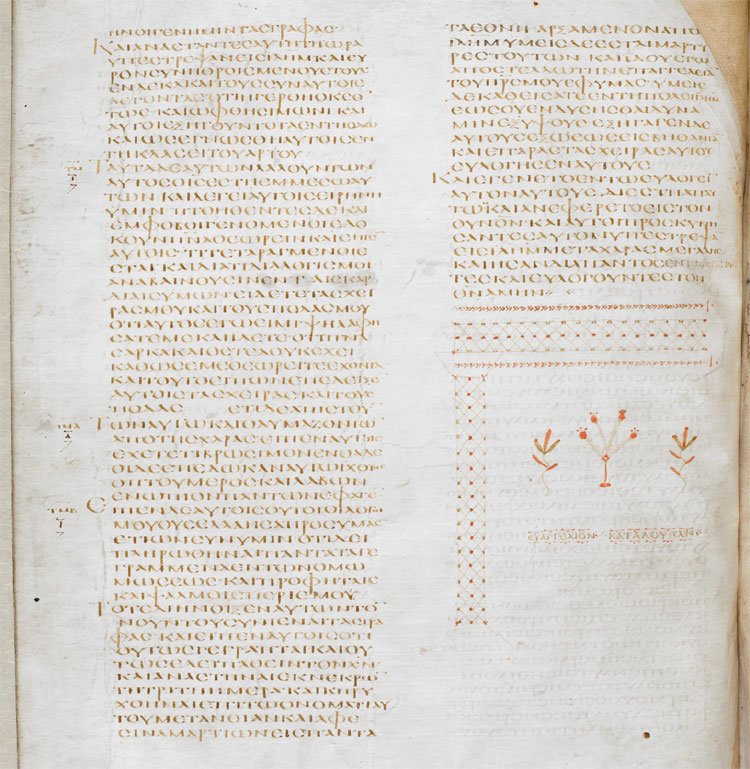 ΗΝΟΙΓΕΝΗΜΙΝΤΑϹΓΡΑΦΑϹ·
ΚΑΙΑΝΑϹΤΑΝΤΕϹΑΥΤΗΤΗΩΡΑ
ΥΠΕϹΤΡΕΨΑΝΕΙϹΙΛΗΜΚΑΙΕΥ
ΡΟΝϹΥΝΗΘΡΟΙϹΜΕΝΟΥϹΤΟΥϹ
ΕΝΔΕΚΑΚΑΙΤΟΥϹϹΥΝΑΥΤΟΙϹ
ΛΕΓΟΝΤΑϹΟΤΙΗΓΕΡΘΗΟΚϹΟ
ΤΩϹ·ΚΑΙΩΦΘΗϹΙΜΩΝΙΚΑΙ
ΑΥΤΟΙΕΞΗΓΟΥΝΤΟΤΑΕΝΤΗΟΔΩ
ΚΑΙΩϹΕΓΝΩϹΘΗΑΥΤΟΙϹΕΝ
ΤΗΚΛΑϹΕΙΤΟΥΑΡΤΟΥ
ΤΑΥΤΑΔΕΑΥΤΩΝΛΑΛΟΥΝΤΩΝ
ΑΥΤΟϹΟΙϹΕϹΤΗΕΜΜΕϹΩΑΥ
ΤΩΝΚΑΙΛΕΓΕΙΑΥΤΟΙϹΕΙΡΗΝΗ
ΥΜΙΝΠΤΟΗΘΕΝΤΕϹΔΕΚΑΙ
ΕΜΦΟΒΟΙΓΕΝΟΜΕΝΟΙΕΔΟ
ΚΟΥΝΠΝΑΘΕΩΡΕΙΝΚΑΙΕΙΠΕ
ΑΥΤΟΙϹ·ΤΙΤΕΤΑΡΑΓΜΕΝΟΙΕ
ϹΤΑΙΚΑΙΔΙΑΤΙΔΙΑΛΟΓΙϹΜΟΙ
ΑΝΑΒΑΙΝΟΥϹΙΝΕΝΤΑΙϹΚΑΡ
ΔΙΑΙϹΥΜΩΝΕΙΔΕΤΕΤΑϹΧΕΙ
ΡΑϹΜΟΥΚΑΙΤΟΥϹΠΟΔΑϹΜΟΥ
ΟΤΙΑΥΤΟϹΕΓΩΕΙΜΙΨΗΛΑΦΗ
ϹΑΤΕΜΕΚΑΙΙΔΕΤΕΟΤΙΠΝΑ
ϹΑΡΚΑΚΑΙΟϹΤΕΑΟΥΚΕΧΕΙ
ΚΑΘΩϹΕΜΕΘΕΩΡΕΙΤΕΕΧΟΝΤΑ
ΚΑΙΤΟΥΤΟΕΙΠΩΝΕΠΕΔΕΙΞΕ
ΑΥΤΟΙϹΤΑϹΧΕΙΡΑϹΚΑΙΤΟΥϹ
ΠΟΔΑϹ ΕΤΙΔΕΑΠΙϹΤΟΥ
ΤΩΝΑΥΤΩΚΑΙΘΑΥΜΑΖΟΝΤΩ
ΑΠΟΤΗϹΧΑΡΑϹΕΙΠΕΝΑΥΤΟΙϹ
ΕΧΕΤΕΤΙΒΡΩϹΙΜΟΝΕΝΘΑΔΕ
ΟΙΔΕΕΠΕΔΩΚΑΝΑΥΤΩΙΧΘΥΟϹ
ΟΠΤΟΥΜΕΡΟϹΚΑΙΛΑΒΩΝ
ΕΝΩΠΙΟΝΠΑΝΤΩΝΕΦΑΓΕ
ΕΙΠΕΝΔΕΑΥΤΟΙϹΟΥΤΟΙΟΙΛΟΓΟΙ
ΜΟΥΟΥϹΕΛΑΛΗϹΑΠΡΟϹΥΜΑϹ
ΕΤΙΩΝϹΥΝΥΜΙΝΟΤΙΔΕΙ
ΠΛΗΡΩΘΗΝΑΙΠΑΝΤΑΤΑΓΕ
ΓΡΑΜΜΕΝΑΕΝΤΩΝΟΜΩ
ΜΩϹΕΩϹ·ΚΑΙΠΡΟΦΗΤΑΙϹ
ΚΑΙΨΑΛΜΟΙϹΠΕΡΙΕΜΟΥ
ΤΟΤΕΔΙΗΝΟΙΞΕΝΑΥΤΩΝΤΟ
ΝΟΥΝΤΟΥϹΥΝΙΕΝΑΙΤΑϹΓΡΑ
ΦΑϹ·ΚΑΙΕΙΠΕΝΑΥΤΟΙϹΟΤΙ
ΟΥΤΩϹΓΕΓΡΑΠΤΑΙΚΑΙΟΥ
ΤΩϹΕΔΕΙΠΑΘΕΙΝΤΟΝΧΝ
ΚΑΙΑΝΑϹΤΗΝΑΙΕΚΝΕΚΡΩ
ΤΗΤΡΙΤΗΗΜΕΡΑ·ΚΑΙΚΗΡΥ
ΧΘΗΝΑΙΕΠΙΤΩΟΝΟΜΑΤΙΑΥ
ΤΟΥΜΕΤΑΝΟΙΑΝΚΑΙΑΦΕ
ϹΙΝΑΜΑΡΤΙΩΝΕΙϹΠΑΝΤΑ
ΤΑΕΘΝΗΑΡΞΑΜΕΝΟΝΑΠΟ
ΙΛΗΜΥΜΕΙϹΔΕΕϹΤΑΙΜΑΡΤΥ
ΡΕϹΤΟΥΤΩΝΚΑΙΙΔΟΥΕΓΩ
ΑΠΟϹΤΕΛΩΤΗΝΕΠΑΓΓΕΛΙΑ
ΤΟΥΠΡϹΜΟΥΕΦΥΜΑϹΥΜΕΙϹ
ΔΕΚΑΘΕΙϹΑΤΕΕΝΤΗΠΟΛΕΙΙΛΗΜ
ΕΩϹΟΥΕΝΔΥϹΗϹΘΑΙΔΥΝΑ
ΜΙΝΕΞΥΨΟΥϹΕΞΗΓΑΓΕΝΔΕ
ΑΥΤΟΥϹΕΞΩΕΩϹΕΙϹΒΗΘΑΝΙΑ
ΚΑΙΕΠΑΡΑϹΤΑϹΧΕΙΡΑϹΑΥΤΟΥ
ΕΥΛΟΓΗϹΕΝΑΥΤΟΥϹ
ΚΑΙΕΓΕΝΕΤΟΕΝΤΩΕΥΛΟΓΕΙ
ΑΥΤΟΝΑΥΤΟΥϹΔΙΕϹΤΗΑΠΑΥ
ΤΩΝΚΑΙΑΝΕΦΕΡΕΤΟΕΙϹΤΟΝ
ΟΥΝΟΝΚΑΙΑΥΤΟΙΠΡΟϹΚΥΝΗ
ϹΑΝΤΕϹΑΥΤΟΝΥΠΕϹΤΡΕΨΑ
ΕΙϹΙΛΗΜΜΕΤΑΧΑΡΑϹΜΕΓΑΛΗϹ
ΚΑΙΗϹΑΝΔΙΑΠΑΝΤΟϹΕΝΤΩΙΕΡΩ
ΤΕϹΚΑΙΕΥΛΟΓΟΥΝΤΕϹΤΟΝ
ΘΝΑΜΗΝ
ΕΥΑΓΓΕΛΙΟΝ ΚΑΤΑΛΟΥΚΑΝ